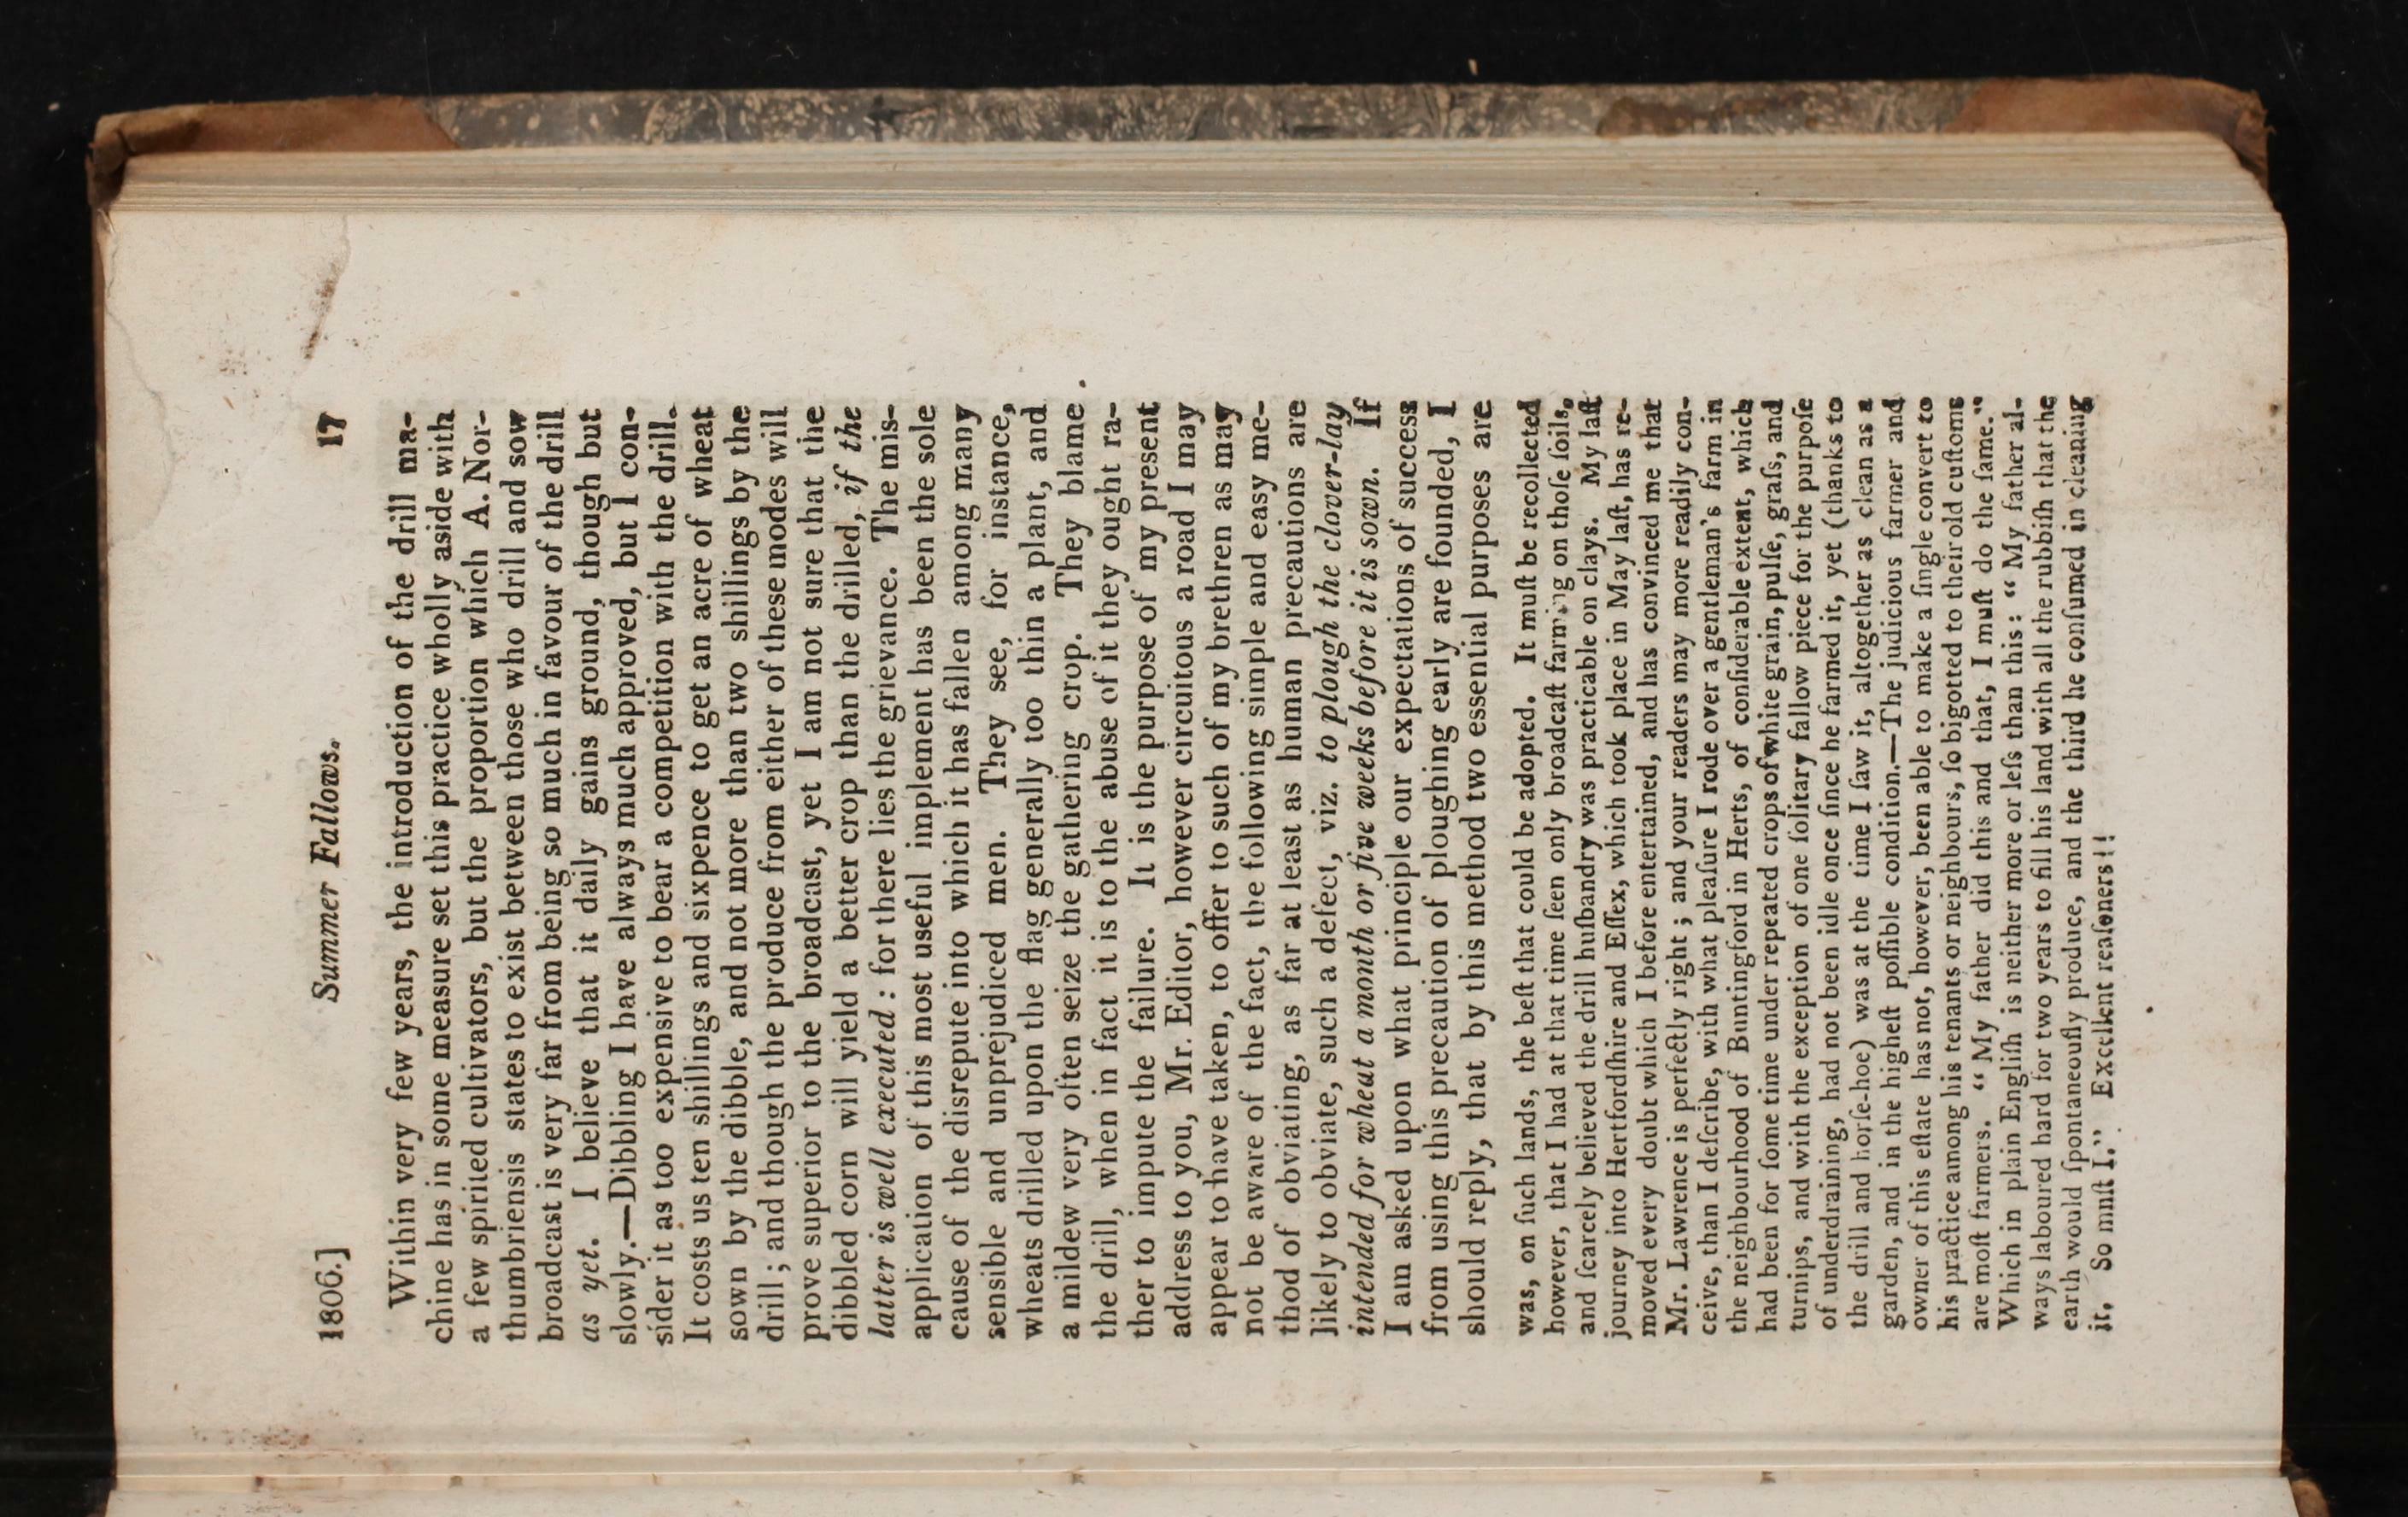 1806.] Summer Fallows. 17
Within very few years, the introduction of the drill ma-
chine has in some measure set this practice wholly aside with
a few spirited cultivators, but the proportion which A. Nor-
thumbriensis states to exist between those who drill and sow
broadcast is very far from being so much in favour of the drill
as yet. I believe that it daily gains ground, though but
slowly.—Dibbling I have always much approved, but I con-
sider it as too expensive to bear a competition with the drill.
It costs us ten shillings and sixpence to get an acre of wheat
sown by the dibble, and not more than two shillings by the
drill; and though the produce from either of these modes will
prove superior to the broadcast, yet I am not sure that the
dibbled corn will yield a better crop than the drilled, if the
latter is well executed: for there lies the grievance. The mis-
application of this most useful implement has been the sole
cause of the disrepute into which it has fallen among many
sensible and unprejudiced men. They see, for instance,
wheats drilled upon the flag generally too thin a plant, and
a mildew very often seize the gathering crop. They blame
the drill, when in fact it is to the abuse of it they ought ra-
ther to impute the failure. It is the purpose of my present
address to you, Mr. Editor, however circuitous a road I may
appear to have taken, to offer to such of my brethren as may
not be aware of the fact, the following simple and easy me-
thod of obviating, as far at least as human precautions are
likely to obviate, such a defect, viz. to plough the clover-lay
intended for wheat a month or five weeks before it is sown. If
I am asked upon what principle our expectations of success
from using this precaution of ploughing early are founded, I
should reply, that by this method two essential purposes are
was, on ſuch lands, the beſt that could be adopted. It muſt be recollected
however, that I had at that time ſeen only broadcaſt farming on thoſe ſoils,
and ſcarcely believed the drill huſbandry was practicable on clays. My laſt
journey into Hertfordſhire and Eſſex, which took place in May laſt, has re-
moved every doubt which I before entertained, and has convinced me that
Mr. Lawrence is perfectly right; and your readers may more readily con-
ceive, than I deſcribe, with what pleaſure I rode over a gentleman's farm in
the neighbourhood of Buntingford in Herts, of conſiderable extent, which
had been for ſome time under repeated crops of white grain, pulſe, graſs, and
turnips, and with the exception of one ſolitary fallow piece for the purpoſe
of underdraining, had not been idle once ſince he farmed it, yet (thanks to
the drill and horſe-hoe) was at the time I ſaw it, altogether as clean as a
garden, and in the higheſt poſſible condition.—The judicious farmer and
owner of this eſtate has not, however, been able to make a ſingle convert to
his practice among his tenants or neighbours, ſo bigotted to their old cuſtoms
are moſt farmers. “My father did this and that, I muſt do the ſame.”
Which in plain Engliſh is neither more or leſs than this: “My father al-
ways laboured hard for two years to fill his land with all the rubbiſh that the
earth would ſpontaneouſly produce, and the third he conſumed in cleaning
it. So muſt I.” Excellent reaſoners!!